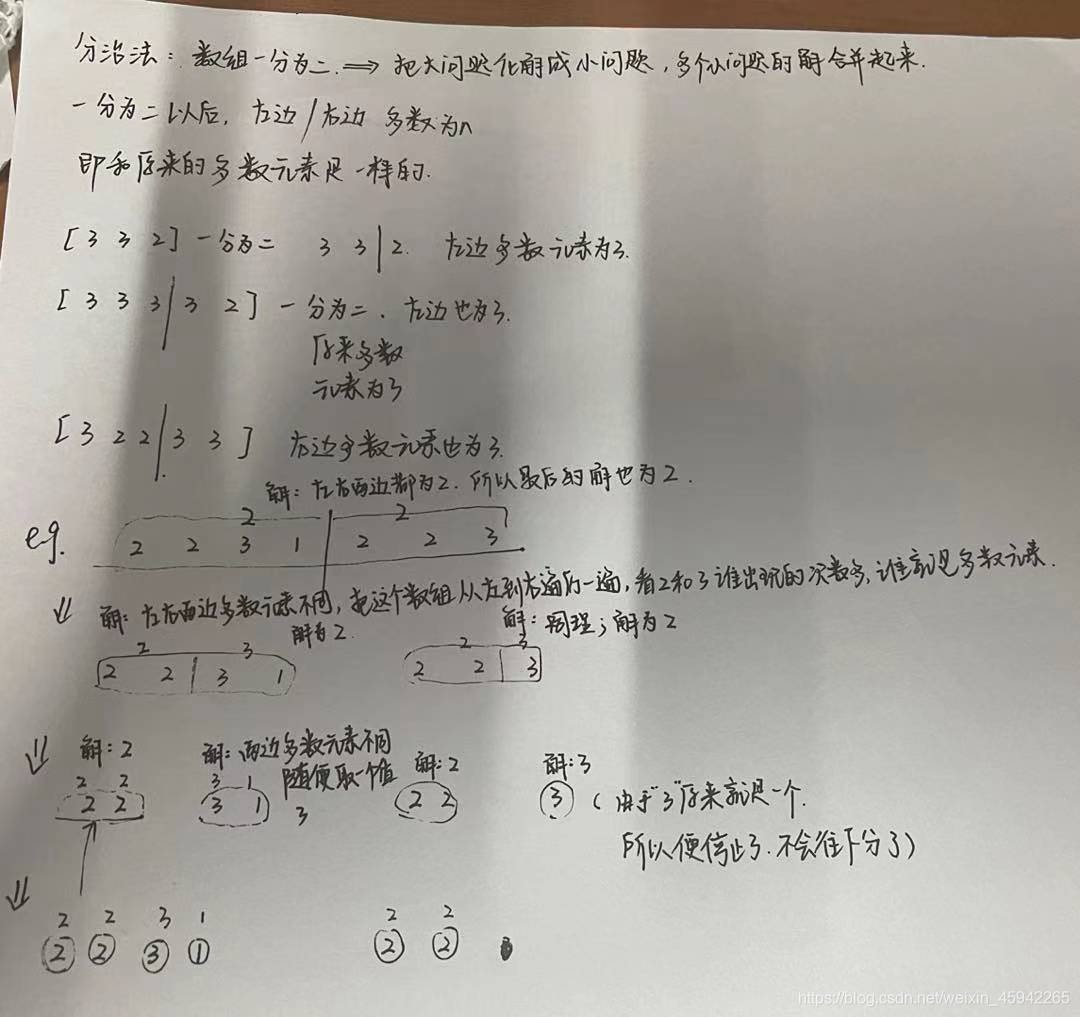 分治法：数组一分为二 ⇒ 把大问题化解成小问题，多个小问题的解合并起来.
一分为二以后，左边/右边 多数为n
即和原来的多数元素是一样的.
[ 3 3 2 ] 一分为二 3 3 | 2. 左边多数元素为3.
[ 3 3 3 | 3 2 ] 一分为二. 左边也为3.
原来多数
元素为3
[ 3 2 2 | 3 3 ] 右边多数元素也为3.
解：左右两边都为2. 所以最后的解也为2.
2 2
eg. 2 2 3 1 | 2 2 3
⇓ 解：左右两边多数元素不同，把这个数组从左到右遍历一遍，看2和3谁出现的次数多，谁就是多数元素.
解为2. 解：同理；解为2
2 3 2 3
2 2 | 3 1 2 2 | 3
⇓ 解：2 解：两边多数元素不同 解：2 解：3
随便取一个值
2 2 3 1 3
2 2 3 1 2 2 3 （由于"3"原来就是一个.
所以便停止了.不会往下分了）
⇓
2 2 3 1 2 2
2 2 3 1 2 2
https://blog.csdn.net/weixin_45942265